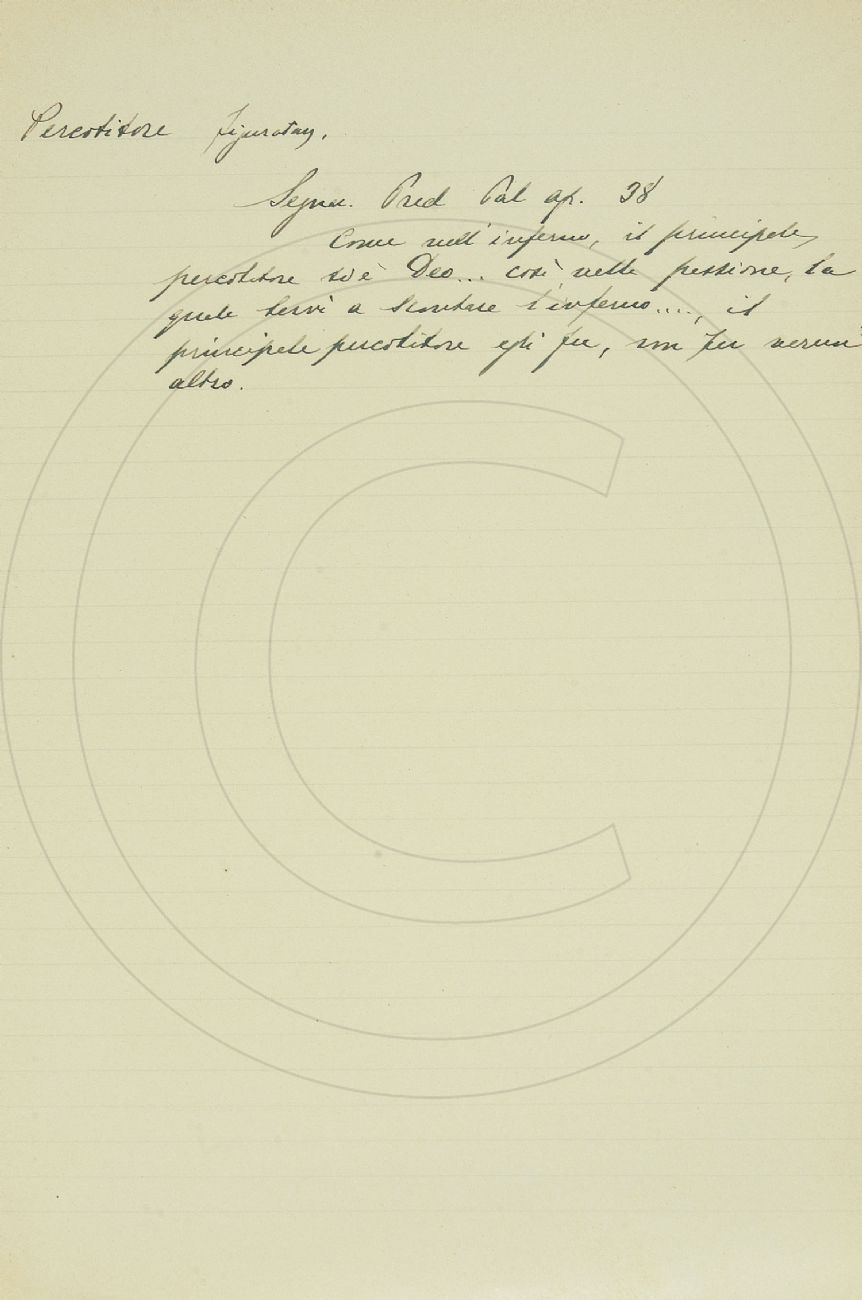 Percotitore figuratam.
Segner. Pred Pal ap. 38
Come nell'inferno, il principale
percotitore si è Dio... così nella passione, la
quale servì a scontare l'inferno...., il
principale percotitore egli fu, non fu verun'
altro.